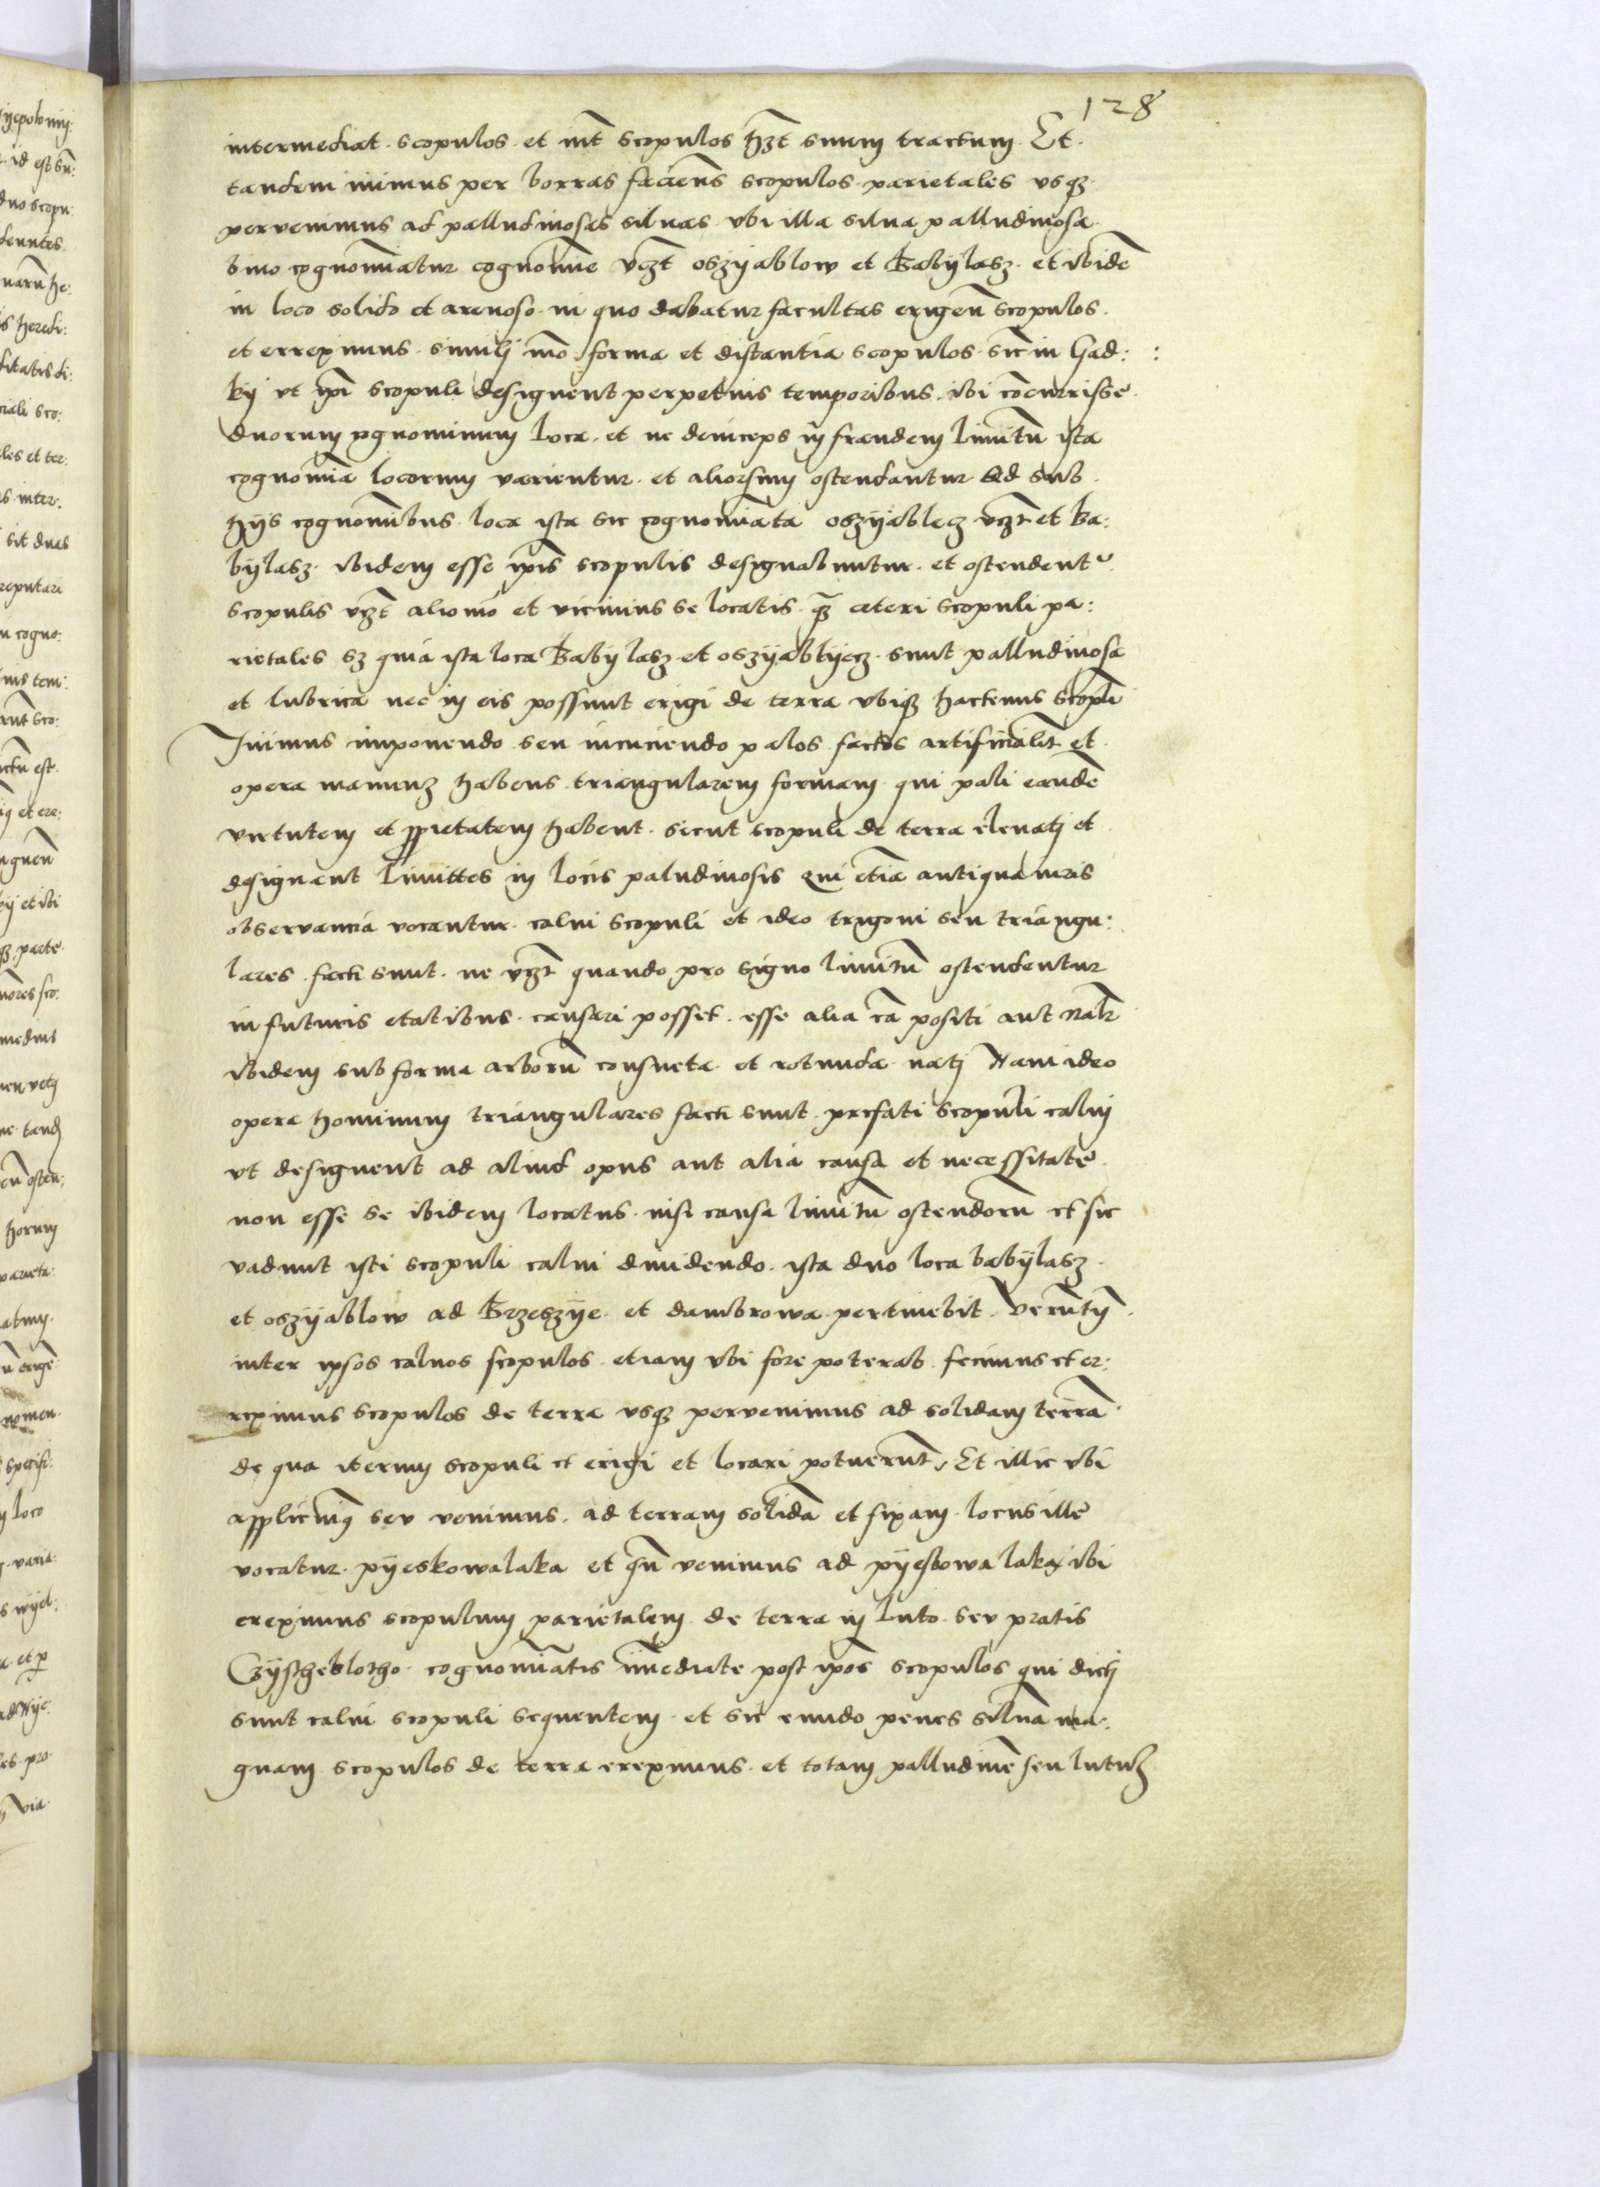 128
intermediat. scopulos. et int̄ scopulos hꝫt suum tractum. Et.
tandem iuimus per borras faciens scopulos parietales vsqꝫ
pervenimus ad palludinosas siluas vbi illa silua palludinosa.
bino cognominatur cognomine vꝫt oszyablow et Babylasz. et ibidē
in loco solido et arenoso in quo dabatur facultas erigen̄ scopulos.
et erreximus. simili mō. forma et distantia scopulos. sic in Gad:
ky vt ipi scopuli designent perpetuis temporibus. ibi cōcurrisse.
duorum cgnominum loca. et ne deinceps in fraudem limitū ista
cognomīa locorum varientur. et aliorsum ostendantur sed sub.
hys cognomībus loca ista sic cognomīata oszyablecz vꝫt et Ba:
bylasz. ibidem esse ipīs scopulis designabuntur. et ostendent᷒.
scopulis vꝫt alio mō et vicinius se locatis. qꝫ ceteri scopuli pa:
rietales sꝫ quia ista loca Babylasz et oszyablyecz. sunt palludinosa
et lubrica nec in eis possunt erigi de terra vbiqꝫ hactenus scopli
Iuimus imponendo seu incuciendo palos. factos artificialit̄ et.
opera manuuꝫ habens triangularem formam. qui pali eandē
virtutem et ꝓprietatem habent. sicut scopuli de terra eleuati et
designant limittes in locis paludinosis qui etiā antiqua iuris
observancia vocantur calui scopuli et ideo trigoni seu triangu:
lares facti sunt. ne vꝫt quando pro signo limitū ostendentur
in futuris etatibus. causari posset. esse alia cā positi aut nālr
ibidem sub forma arborū consueta et rotunda nati Nam ideo
opera hominum triangulares facti sunt. prefati scopuli calui
vt designent ad aliud opus aut alia causa et necessitate.
non esse se ibidem locatus. nisi causa limitū ostendorū et sic
vadunt isti scopuli calui diuidendo. ista duo loca babylasz.
et oszyablow ad Brzeszye et dambrowa pertinebit. Verūtn̄.
inter ipsos caluos scopulos. etiam vbi fore poterat. fecimus et er:
reximus scopulos de terra vsqꝫ pervenimus ad solidam terrā.
de qua iterum scopuli et erigi et locari potuerūt, Et illic vbi
applicuimꝰ seu venimus. ad terram solidā et fixam. locus ille
vocatur. pyeskowalaka et qn̄ venimus ad pyeskowa laka, ibi
ereximus scopulum parietalem de terra in luto seu pratis
Czystheblotho cognomīatis īmediate post ipōs scopulos qui dicti
sunt calui scopuli sequentem. et sic eundo penes siluā ma:
gnam scopulos de terra ereximus. et totam palludinē seu lutuꝫ